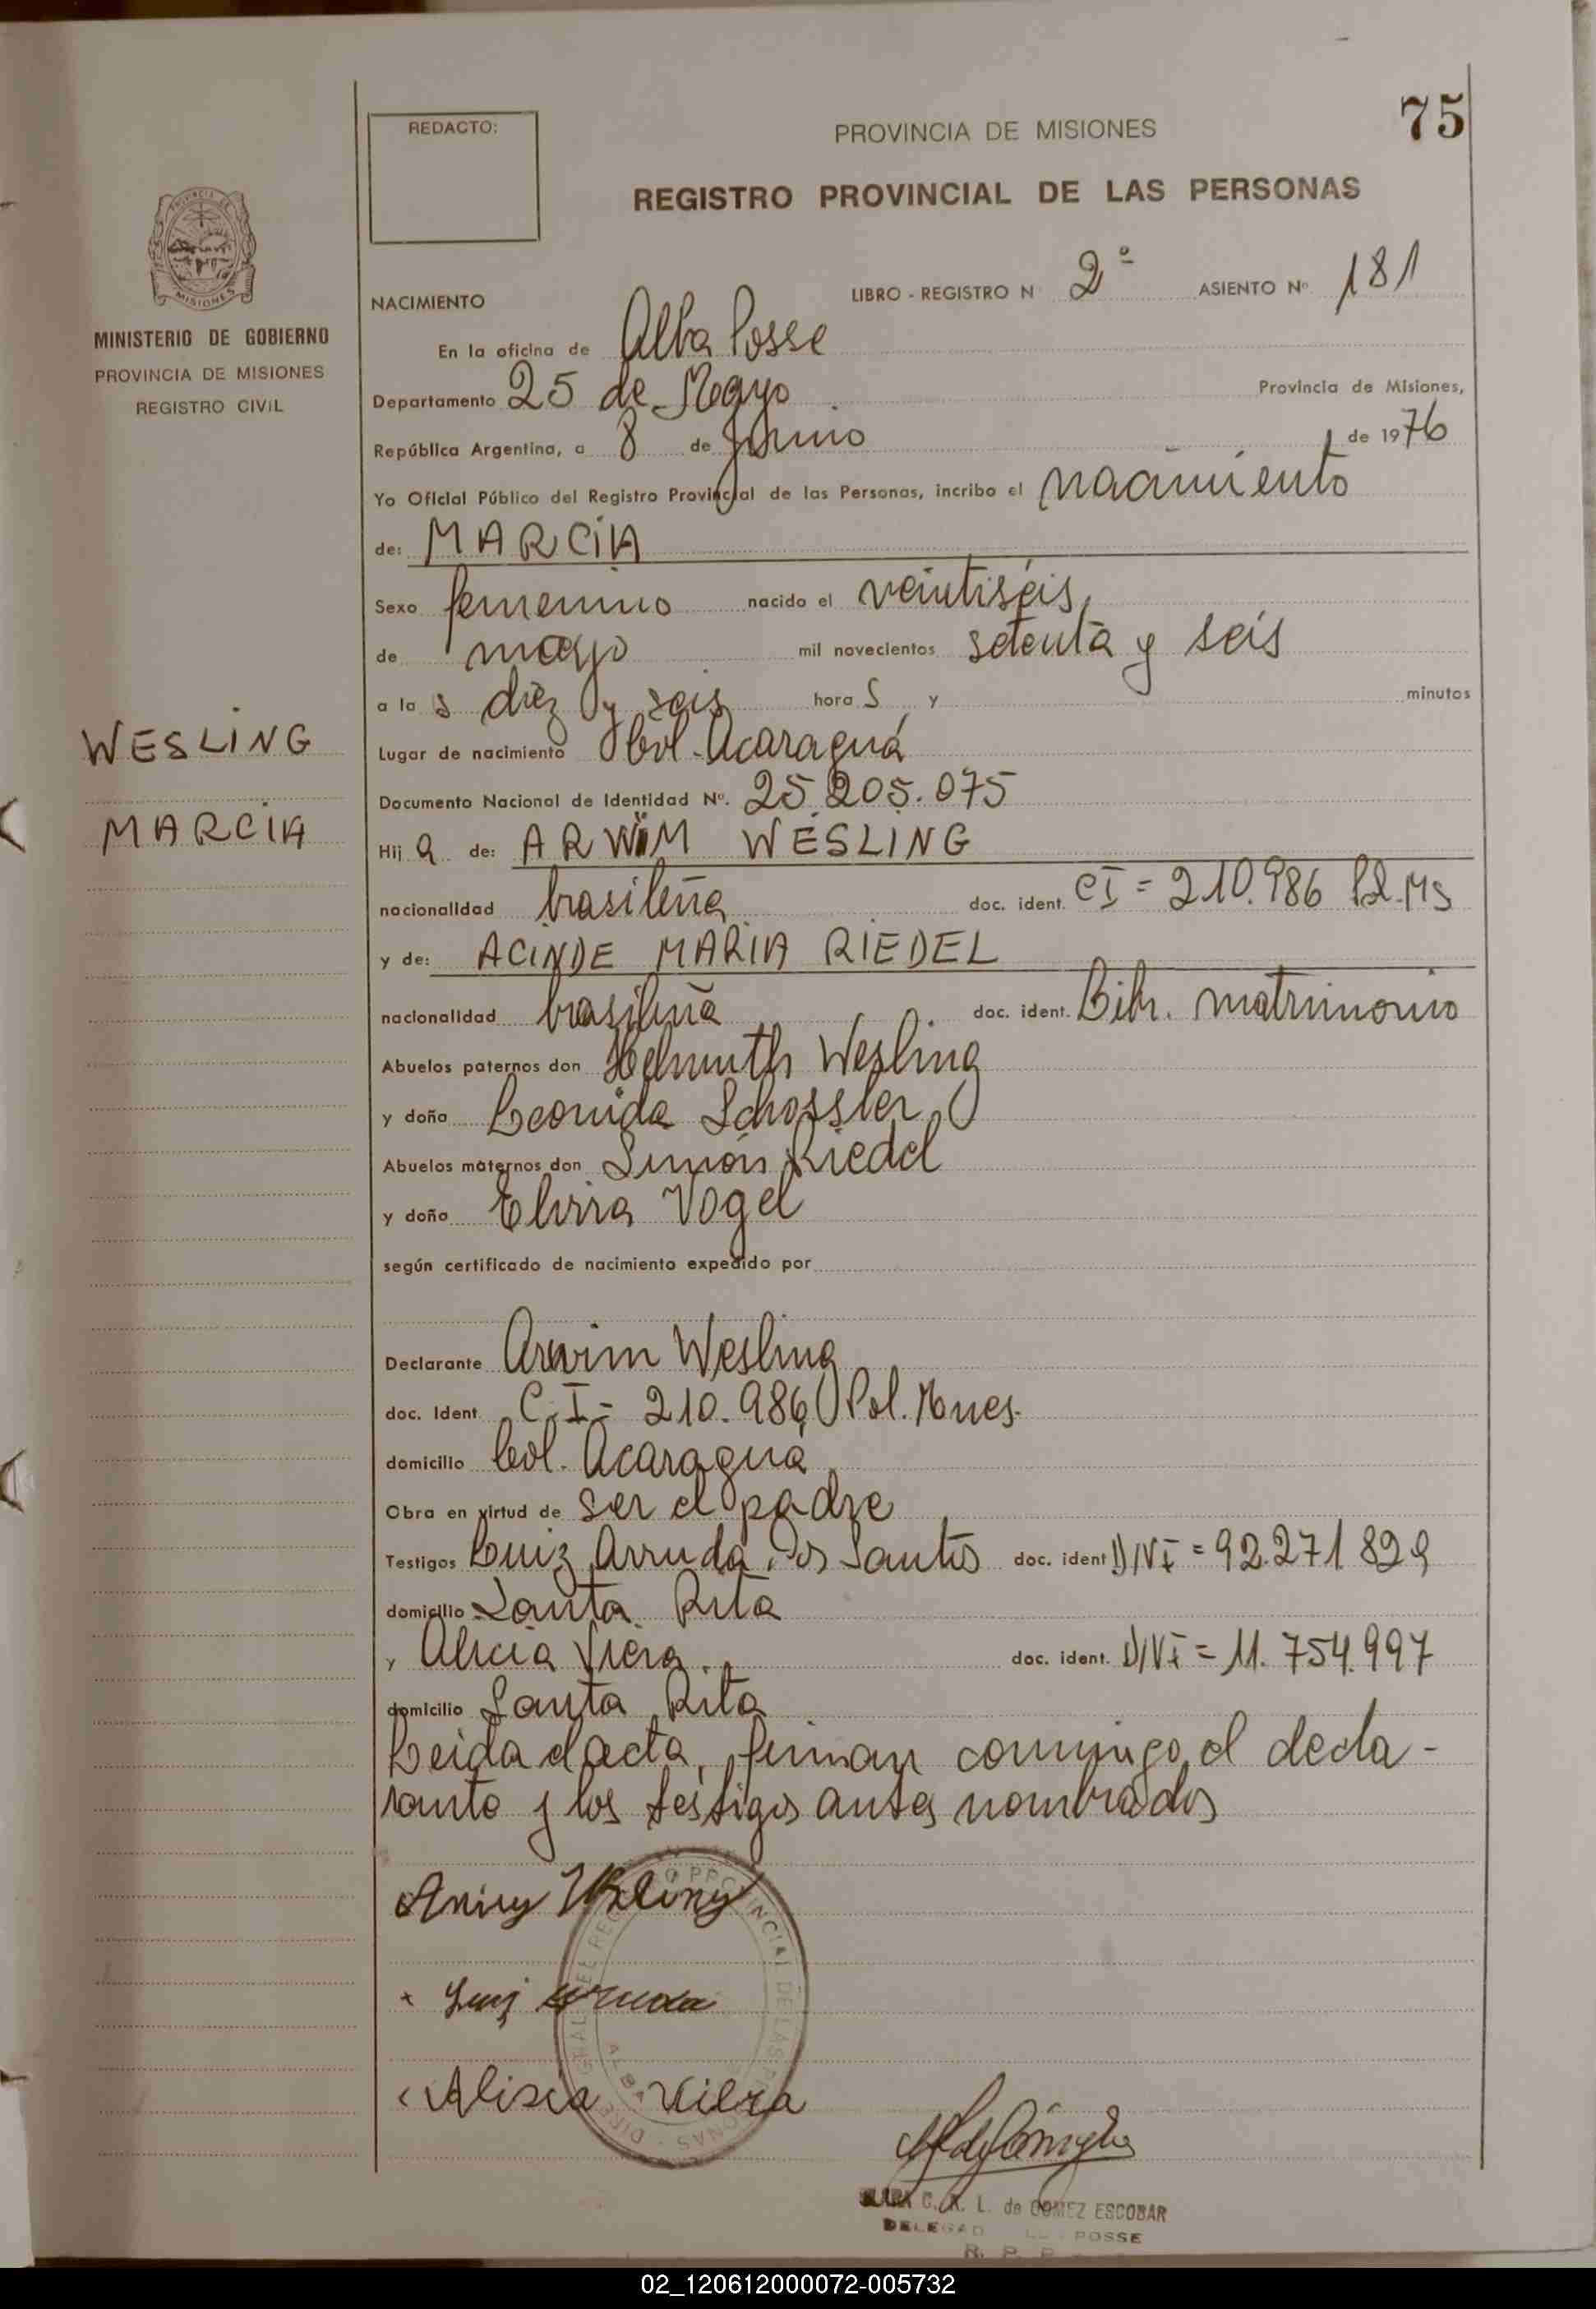 75
REDACTO:
PROVINCIA DE MISIONES
REGISTRO PROVINCIAL DE LAS PERSONAS
MISIONES
MINISTERIO DE GOBIERNO
PROVINCIA DE MISIONES
REGISTRO CIVIL
NACIMIENTO LIBRO - REGISTRO N 2º ASIENTO Nº 181
En la oficina de Alba Posse
Departamento 25 de Mayo Provincia de Misiones,
República Argentina, a 8 de Junio de 1976
Yo Oficial Público del Registro Provincial de las Personas, incribo el nacimiento
de: MARCIA
Sexo femenino nacido el veintiséis
de mayo mil novecientos setenta y seis
a la s diez y seis hora s y minutos
WESLING
Lugar de nacimiento Col. Acaraguá
Documento Nacional de Identidad Nº. 25.205.075
MARCIA
Hij a de: ARWIM WESLING
nacionalidad brasileña doc. ident. CI = 210.986
y de: ACINDE MARIA RIEDEL
nacionalidad brasileña doc. ident. matrimonio
Abuelos paternos don Helmuth Wesling
y doña Leonida Schossler
Abuelos maternos don Simón Riedel
y doña Elvira Vogel
según certificado de nacimiento expedido por
Declarante Arwim Wesling
doc. Ident. C.I = 210.986 Pol. Mnes.
domicilio Col. Acaraguá
Obra en virtud de ser el padre
Testigos Luiz Arruda Dos Santos doc. ident DNI = 92.271829
domicilio Santa Rita
y Alicia Viera doc. ident. DNI = 11.754.997
domicilio Santa Rita
Leida el acta, firman conmigo el decla-
rante y los testigos antes nombrados
Wesling
Luiz Arruda
Alisia Vieira
C. L. de GOMEZ ESCOBAR
POSSE
02_120612000072-005732